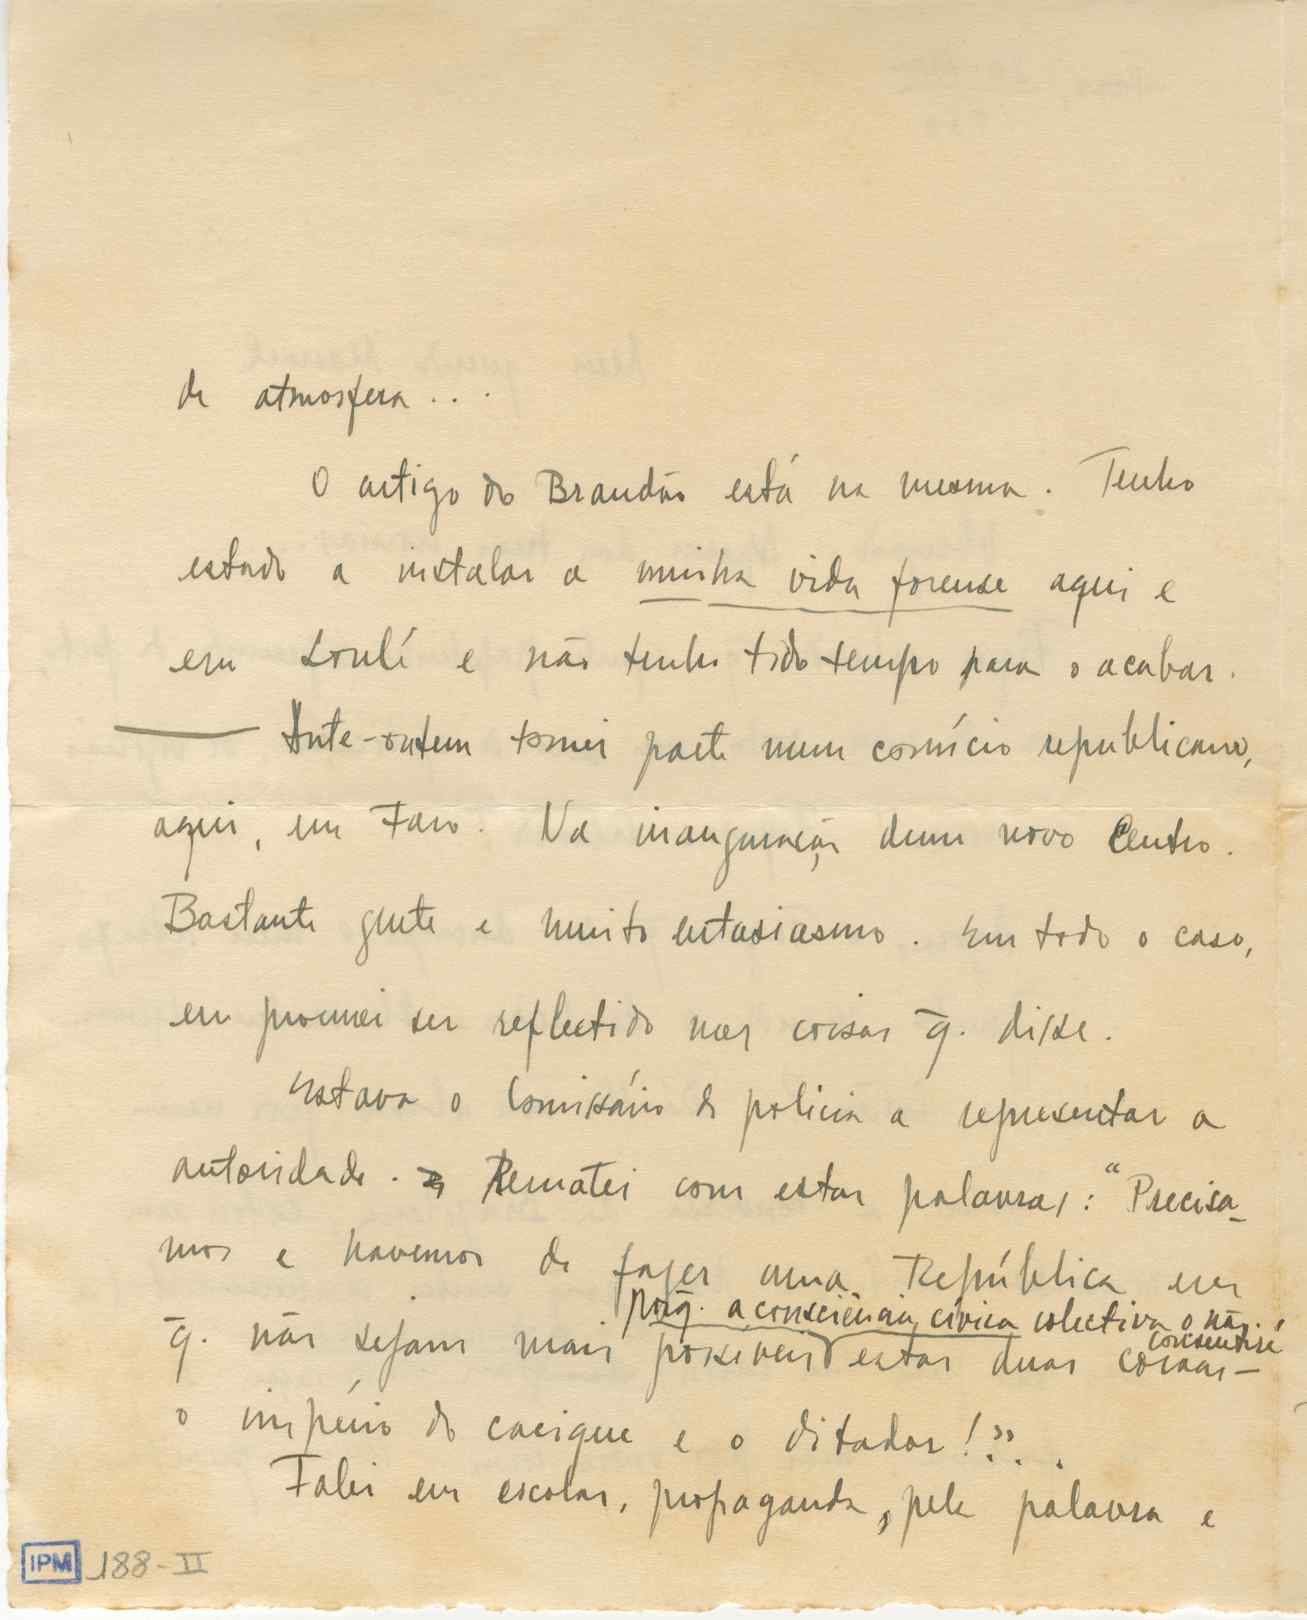 de atmosfera...
O artigo do Brandão está na mesma. Tenho
estado a instalar a minha vida forense aqui e
em Loulé e não tenho tido tempo para o acabar.
Ante-ontem tomei parte num comício republicano,
aqui, em Faro. Na inauguração dum novo Centro.
Bastante gente e muito entusiasmo. Em todo o caso,
eu procurei ser reflectido nas coisas q̄. disse.
Estava o Comissário de polícia a representar a
autoridade. Rematei com estas palavras: "Precisa-
mos e havemos de fazer uma República em
porq̄. a consciência cívica colectiva o não consentirá
q̄. não sejam mais possíveis estas duas coisas —
o império do cacique e o ditador!"..
Falei em escolas, propaganda, pela palavra e
IPM 188-II